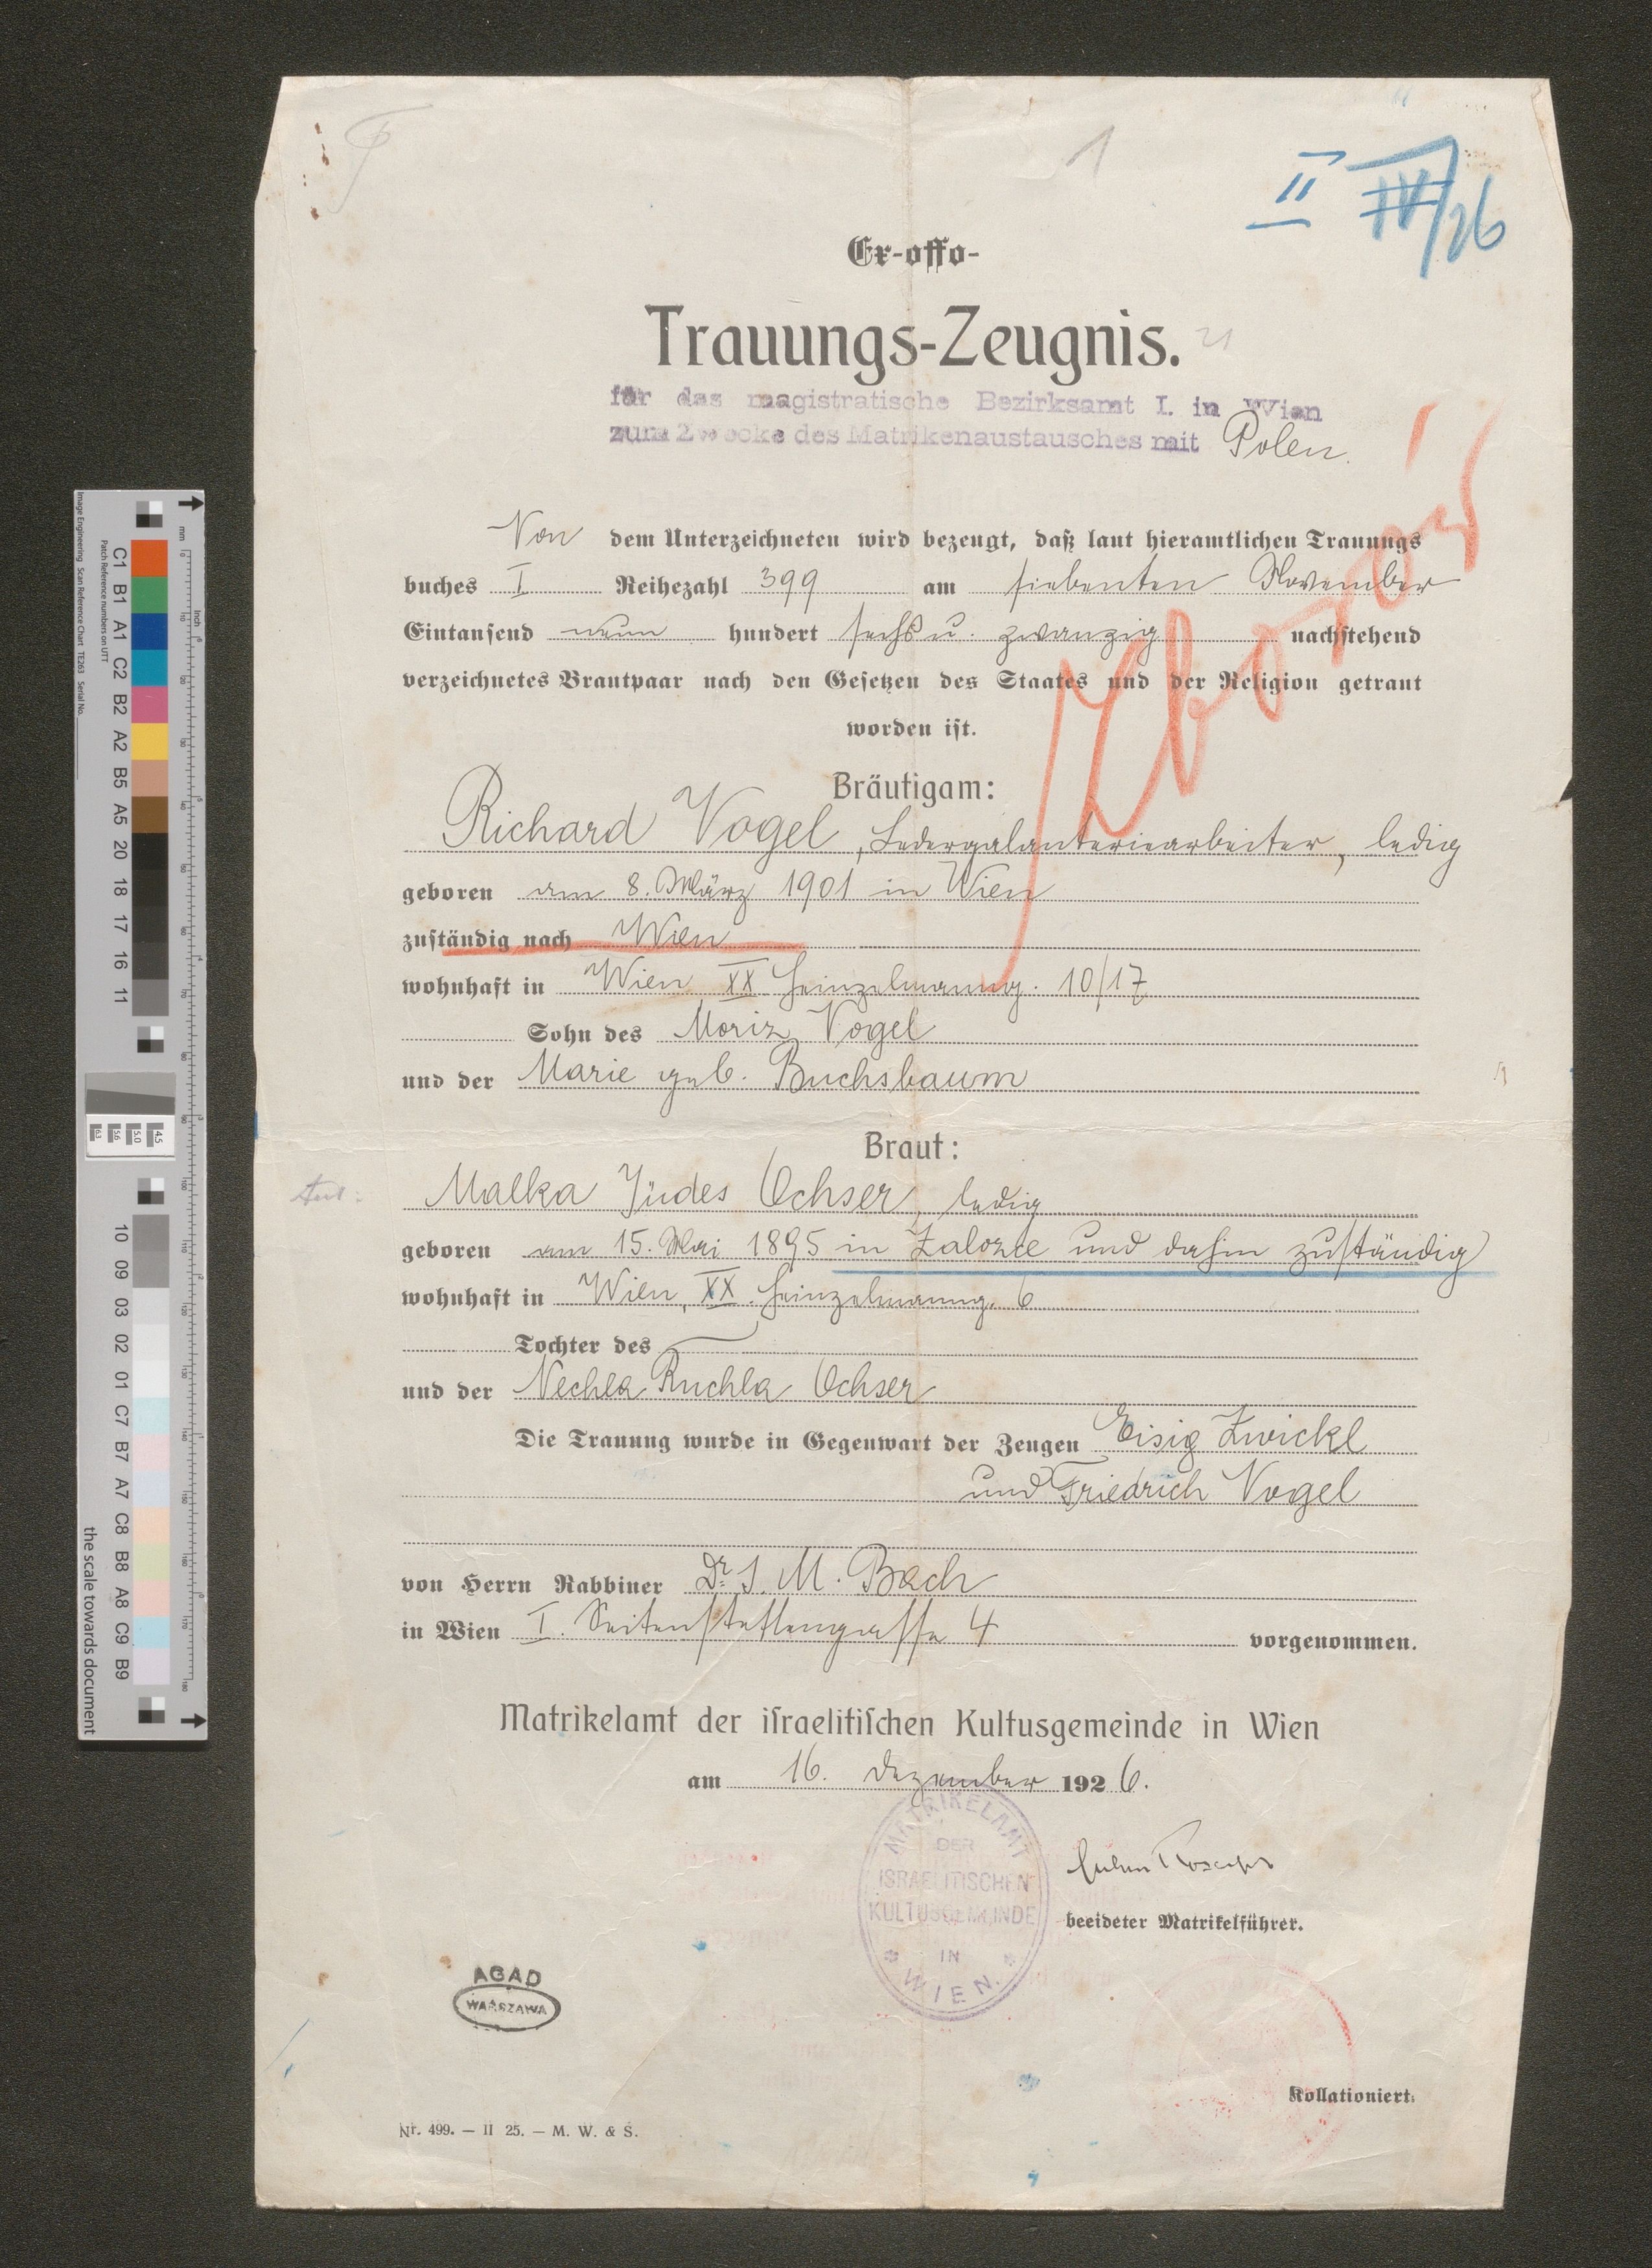 1
II IV/26
Ex-offo-
Trauungs-Zeugnis.
21
für das magistratische Bezirksamt I. in Wien
zum Zwecke des Matrikenaustausches mit Polen.
Zborów
Von dem Unterzeichneten wird bezeugt, daß laut hieramtlichen Trauungs
buches I Reihezahl 399 am siebenten November
Eintausend neun hundert sechs u. zwanzig nachstehend
verzeichnetes Brautpaar nach den Gesetzen des Staates und der Religion getraut
worden ist.
Bräutigam:
Richard Vogel, Ledergalanteriearbeiter, ledig
geboren am 8. März 1901 in Wien
zuständig nach Wien
wohnhaft in Wien XX Heinzelmanng. 10/17
Sohn des Moriz Vogel
und der Marie geb. Buchsbaum
Braut:
Malka Jüdes Ochser, ledig
geboren am 15. Mai 1895 in Zalozce und dahin zuständig
wohnhaft in Wien, XX. Heinzelmanng. 6
Tochter des
und der Nechla Ruchla Ochser
Die Trauung wurde in Gegenwart der Zeugen Eisig Zwickl
und Friedrich Vogel
von Herrn Rabbiner Dr. S. M. Bach
in Wien I. Seitenstettengasse 4 vorgenommen.
Matrikelamt der israelitischen Kultusgemeinde in Wien
am 16. Dezember 1926.
MATRIKELAMT
DER
ISRAELITISCHEN
KULTUSGEMEINDE
IN
WIEN.
beeideter Matrikelführer.
AGAD
WARSZAWA
Kollationiert:
Nr. 499. — II 25. — M. W. & S.
Image Engineering Scan Reference Chart TE263 Serial No.
Patch Reference numbers on UTT
C1 B1 A1 C2 B2 A2 B5 A5 20 18 17 16 11
10 09 03 02 01 C7 B7 A7 C8 B8 A8 C9 B9
mm
inch
the scale towards document